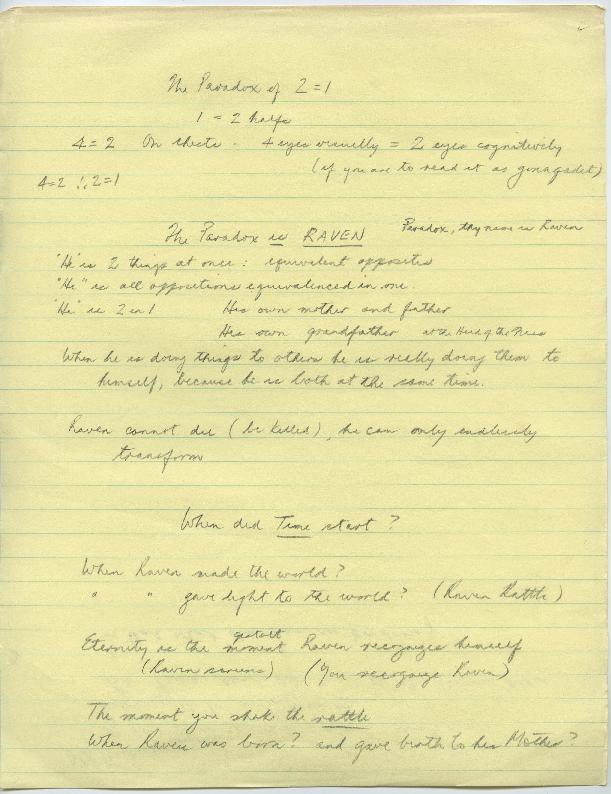 The Paradox of 2=1
1 = 2 halfs
4=2 On chests - 4 eyes visually = 2 eyes cognitively
(if you are to read it as gonaqadet)
4=2 ∴ 2=1
The Paradox is RAVEN
Paradox, thy name is Raven
"He" is 2 things at once: equivalent opposites
"He" is all oppositions equivalenced in one.
"He" is 2 in 1 His own mother and father
His own grandfather at the Head of the Nass
When he is doing things to others he is really doing them to
himself, because he is both at the same time.
Raven cannot die (be killed), he can only endlessly
transform
When did Time start?
When Raven made the world?
" " gave light to the world? (Raven Rattle)
gestalt
Eternity is the moment Raven recognizes himself
(Raven screens) (You recognize Raven)
The moment you shak the rattle
When Raven was born? and gave birth to his Mother?